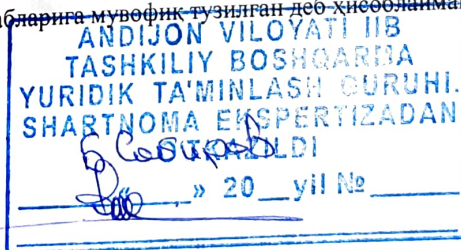 абларига мувофиқ тузилган деб ҳисоблайман
ANDIJON VILOYATI IIB
TASHKILIY BOSHQARMA
YURIDIK TA'MINLASH GURUHI.
SHARTNOMA EKSPERTIZADAN
O'TKAZILDI
» 20__yil №